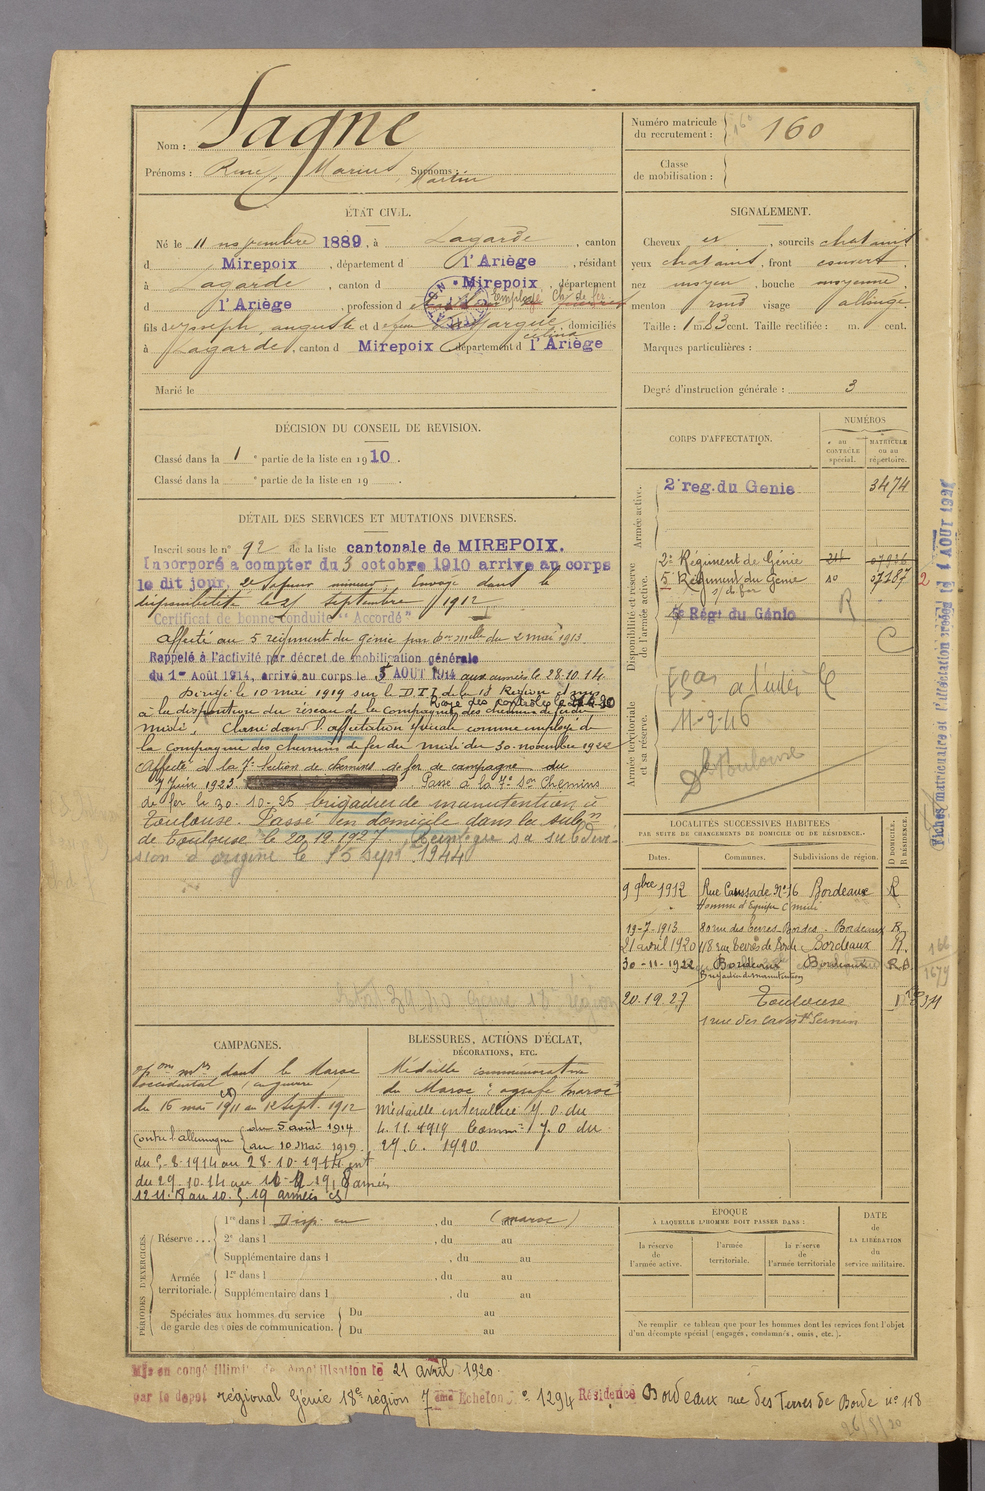 Nom : Sagne
Prénoms : René, Marius, Surnoms : Martin
Numéro matricule du recrutement : 160
Classe de mobilisation :
ÉTAT CIVIL.
Né le 11 novembre 1889, à Lagarde, canton
d Mirepoix, département d l'Ariège, résidant
à Lagarde, canton d Mirepoix, département
d l'Ariège, profession d Employé Ch. de fer
fils de Joseph, auguste et de Marque, domiciliés
à Lagarde, canton d Mirepoix département d l'Ariège
Marié le
SIGNALEMENT.
Cheveux et, sourcils chatains
yeux chatains, front couvert,
nez moyen, bouche moyenne
menton rond visage allongé
Taille : 1 m. 83 cent. Taille rectifiée : m. cent.
Marques particulières :
Degré d'instruction générale : 3
DÉCISION DU CONSEIL DE REVISION.
Classé dans la 1e partie de la liste en 1910.
Classé dans la e partie de la liste en 19 .
DÉTAIL DES SERVICES ET MUTATIONS DIVERSES.
Inscrit sous le n° 92 de la liste cantonale de MIREPOIX.
Incorporé a compter du 3 octobre 1910 arrivé au corps
le dit jour, 2e Sapeur mineur, Envoyé dans la
disponibilité le 25 septembre 1912
Certificat de bonne conduite "Accordé"
Affecté au 5 régiment du génie par on mlle du 2 mai 1913
Rappelé à l'activité par décret de mobilisation générale
du 1er Août 1914, arrivé au corps le 5 AOUT 1914 aux armées le 28.10.14
Dirigé le 10 mai 1919 sur le D.T.I. de la 18 Région
à la disposition du réseau de la Compagnie des chemins de fer du
Rayé des contrôles le
midi, Classé dans l'affectation spéciale comme employé de
la Compagnie des chemins de fer du midi du 30 novembre 1922
Affecté à la 7e Section de chemins de fer de campagne du
7 Juin 1923 Passé à la 4e Son Chemins
de fer le 30-10-25 brigadier de manutention à
Toulouse. Passé en domicile dans la subon
de Toulouse le 20.12.1927. Réintègre sa subdivi-
sion d'origine le 15 Sept 1944
CORPS D'AFFECTATION.
NUMÉROS
au CONTRÔLE spécial.
MATRICULE ou au répertoire.
Armée active.
2e reg. du Genie 3474
Disponibilité et réserve de l'armée active.
2e Régiment de Génie
5 Régiment du Génie 10 07287 2
s/s de fer
5e Rég. du Génio R
C
Armée territoriale et sa réserve.
11-2-46
de Toulouse
Fiches matriculaires et d'affectation créées le 14 AOUT 192
LOCALITÉS SUCCESSIVES HABITÉES
PAR SUITE DE CHANGEMENTS DE DOMICILE OU DE RÉSIDENCE.
Dates. Communes. Subdivisions de région. D DOMICILE. R RÉSIDENCE.
9 9bre 1912 Rue Caussade No 16 Bordeaux R
Homme d'Equipe C midi
19-7-1913 80 rue des terres-Bordes - Bordeaux R
21 avril 1920 118 rue terres de Borde Bordeaux R.
30-11-1922 Bordeaux Bordeaux R.D.
Brigadier de manutention
20.12.27 Toulouse D
1 rue des Cuves St Sernin
CAMPAGNES.
opons mres dans le Maroc
occidental (en guerre)
du 16 mai 1911 au 12 Sept. 1912
Contre l'allemagne du 5 août 1914
au 10 Mai 1919.
du 5-8-1914 au 28-10-1914 int
du 29-10-14 au 11-11-1918 armées
12 11.18 au 10.5.19 armées
BLESSURES, ACTIONS D'ÉCLAT,
DÉCORATIONS, ETC.
Médaille commémorative
du Maroc : agrafe maroc
Médaille interalliée J.O. du
4.11.1919 Comm. J.O du
27.6.1920.
PÉRIODES D'EXERCICES.
Réserve ... 1re dans l Disp. en, du (maroc)
2e dans l , du au
Supplémentaire dans l , du au
Armée territoriale. 1re dans l , du au
Supplémentaire dans l , du au
Spéciales aux hommes du service de garde des voies de communication. Du au
Du au
ÉPOQUE
À LAQUELLE L'HOMME DOIT PASSER DANS :
la réserve de l'armée active.
l'armée territoriale.
la réserve de l'armée territoriale
DATE de LA LIBÉRATION du service militaire.
Ne remplir ce tableau que pour les hommes dont les services font l'objet
d'un décompte spécial (engagés, condamnés, omis, etc.).
Mis en congé illimité de démobilisation le 21 avril 1920.
par le dépôt régional Génie 18e région 7ème Echelon no 1294 Résidence Bordeaux rue des Terres de Borde no 118